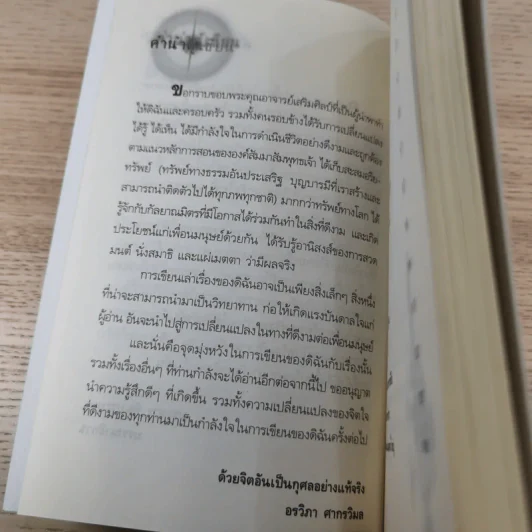 คำนำผู้เขียน
ขอกราบขอบพระคุณอาจารย์เสริมศิลป์ที่เป็นผู้นำพาคำ
ให้ดิฉันและครอบครัว รวมทั้งคนรอบข้างได้รับการเปลี่ยนแปลง
ได้รู้ ได้เห็น ได้มีกำลังใจในการดำเนินชีวิตอย่างดีงามและถูกต้อง
ตามแนวหลักการสอนขององค์สัมมาสัมพุทธเจ้า ได้เก็บสะสมอริยะ
ทรัพย์ (ทรัพย์ทางธรรมอันประเสริฐ บุญบารมีที่เราสร้างและ
สามารถนำติดตัวไปได้ทุกภพทุกชาติ) มากกว่าทรัพย์ทางโลก ได้
รู้จักกับกัลยาณมิตรที่มีโอกาสได้ร่วมกันทำในสิ่งที่ดีงาม และเกิด
ประโยชน์แก่เพื่อนมนุษย์ด้วยกัน ได้รับรู้อานิสงส์ของการสวด
มนต์ นั่งสมาธิ และแผ่เมตตา ว่ามีผลจริง
การเขียนเล่าเรื่องของดิฉันอาจเป็นเพียงสิ่งเล็กๆ สิ่งหนึ่ง
ที่น่าจะสามารถนำมาเป็นวิทยาทาน ก่อให้เกิดแรงบันดาลใจแก่
ผู้อ่าน อันจะนำไปสู่การเปลี่ยนแปลงในทางที่ดีงามต่อเพื่อนมนุษย์
และนั่นคือจุดมุ่งหวังในการเขียนของดิฉันกับเรื่องนั้น
รวมทั้งเรื่องอื่นๆ ที่ท่านกำลังจะได้อ่านอีกต่อจากนี้ไป ขออนุญาต
นำความรู้สึกดีๆ ที่เกิดขึ้น รวมทั้งความเปลี่ยนแปลงของจิตใจ
ที่ดีงามของทุกท่านมาเป็นกำลังใจในการเขียนของดิฉันครั้งต่อไป
ด้วยจิตอันเป็นกุศลอย่างแท้จริง
อรวิภา ศากรวิมล